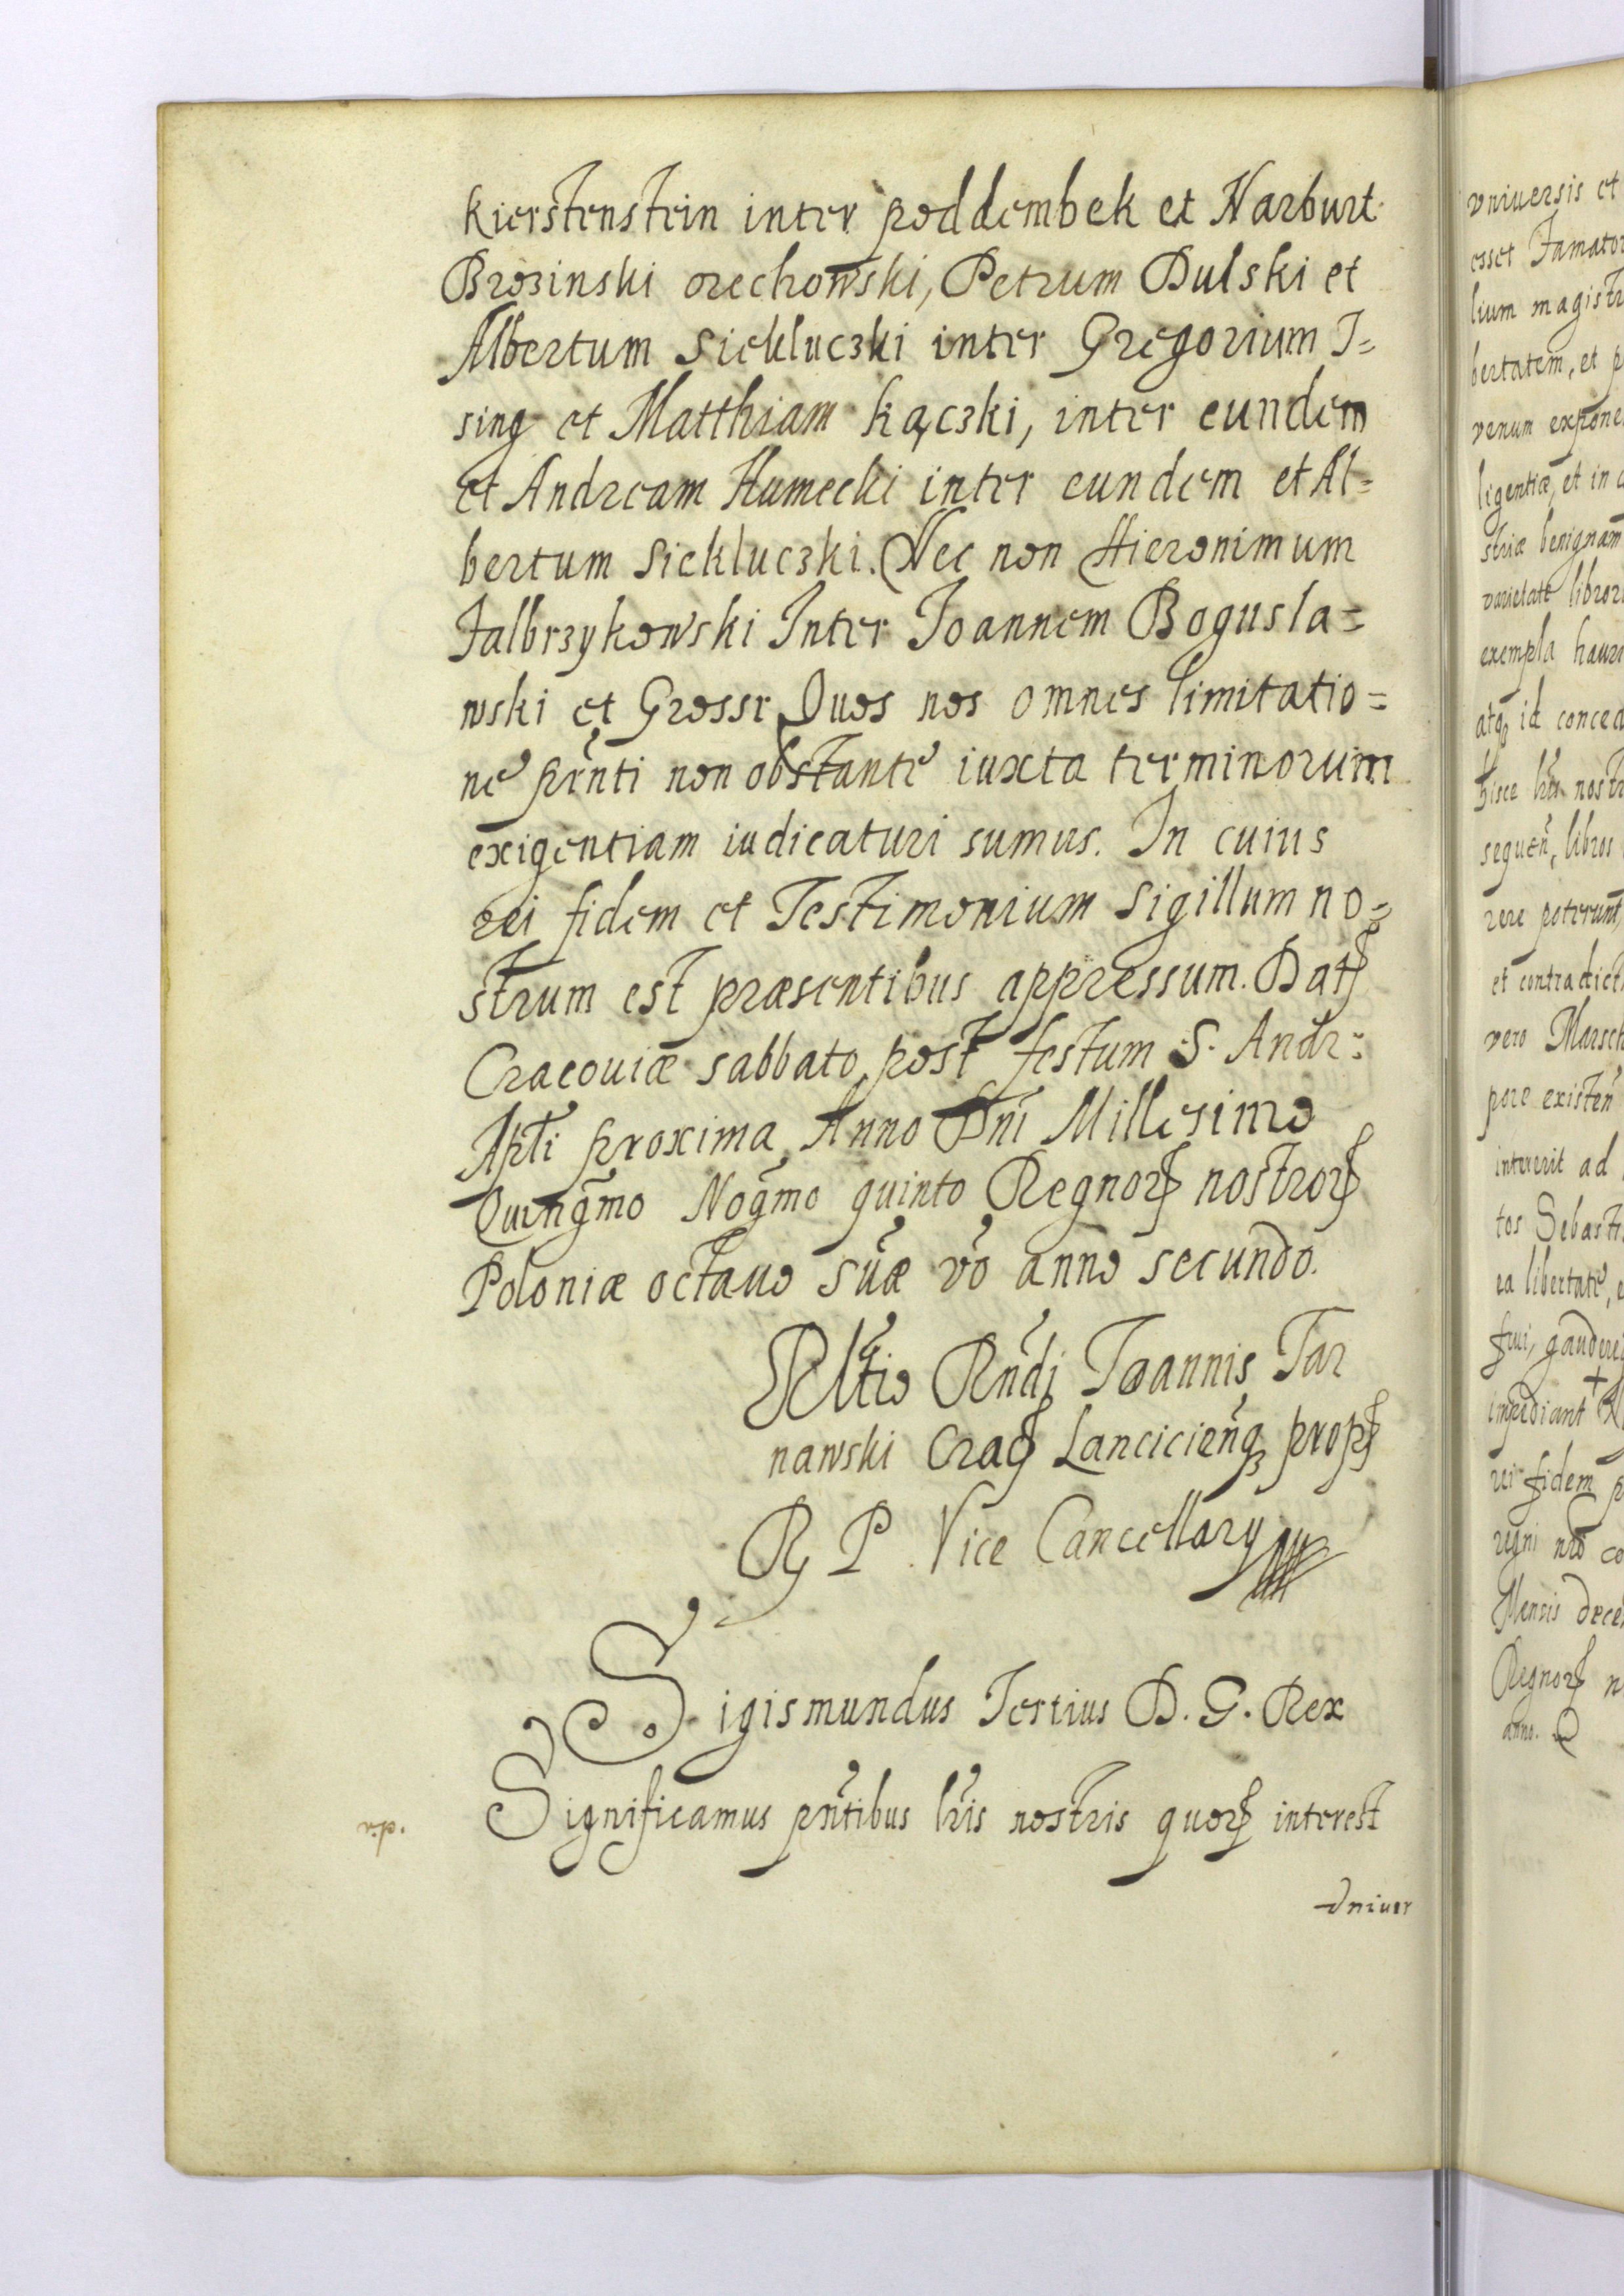 Kierstenstein inter poddembek et Narburt
Brozinski orechowski, Petrum Dulski et
Albertum Siekluczki inter Gregorium I=
sing et Matthiam Kączki, inter eundem
et Andream Humecki inter eundem et Al=
bertum Siekluczki. Nec non Hieronimum
Falbrzykowski Inter Joannem Bogusla=
wski et Grossr Quos nos omnes limitatio=
ne prñti non obstante iuxta terminorum
exigentiam iudicaturi sumus. In cuius
rei fidem et Testimonium Sigillum no=
strum est præsentibus appressum. Datꝭ
Cracouiæ sabbato post festum S. Andr:
Apti proxima Anno Dni Millesimo
Quingmo Nogmo quinto Regnorꝭ nostrorꝭ
Poloniæ octauo Suæ vo anno secundo.
Rltio Rndi Joannis Tar
nawski Cracꝭ Lancicienqꝫ propꝭ
R P Vice Cancellary
Sigismundus Tertius D. G. Rex
Significamus pñtibus lris nostris quorꝭ interest
Vniuer
vniuersis et
esset Famator
lium magistr
bertatem, et p
venum expone
ligentiæ, et in
striæ benignam
varietate libror
exempla hauri
atqꝫ id conced
hisce lris nostr
sequen, libros
rere poterunt,
et contradict
vero Marsch
pore existen
intererit ad
tos Sebasti
ea libertate,
frui, gaudere
impediant
rei fidem p
regni nro co
Mensis dece
Regnorꝭ n
anno.